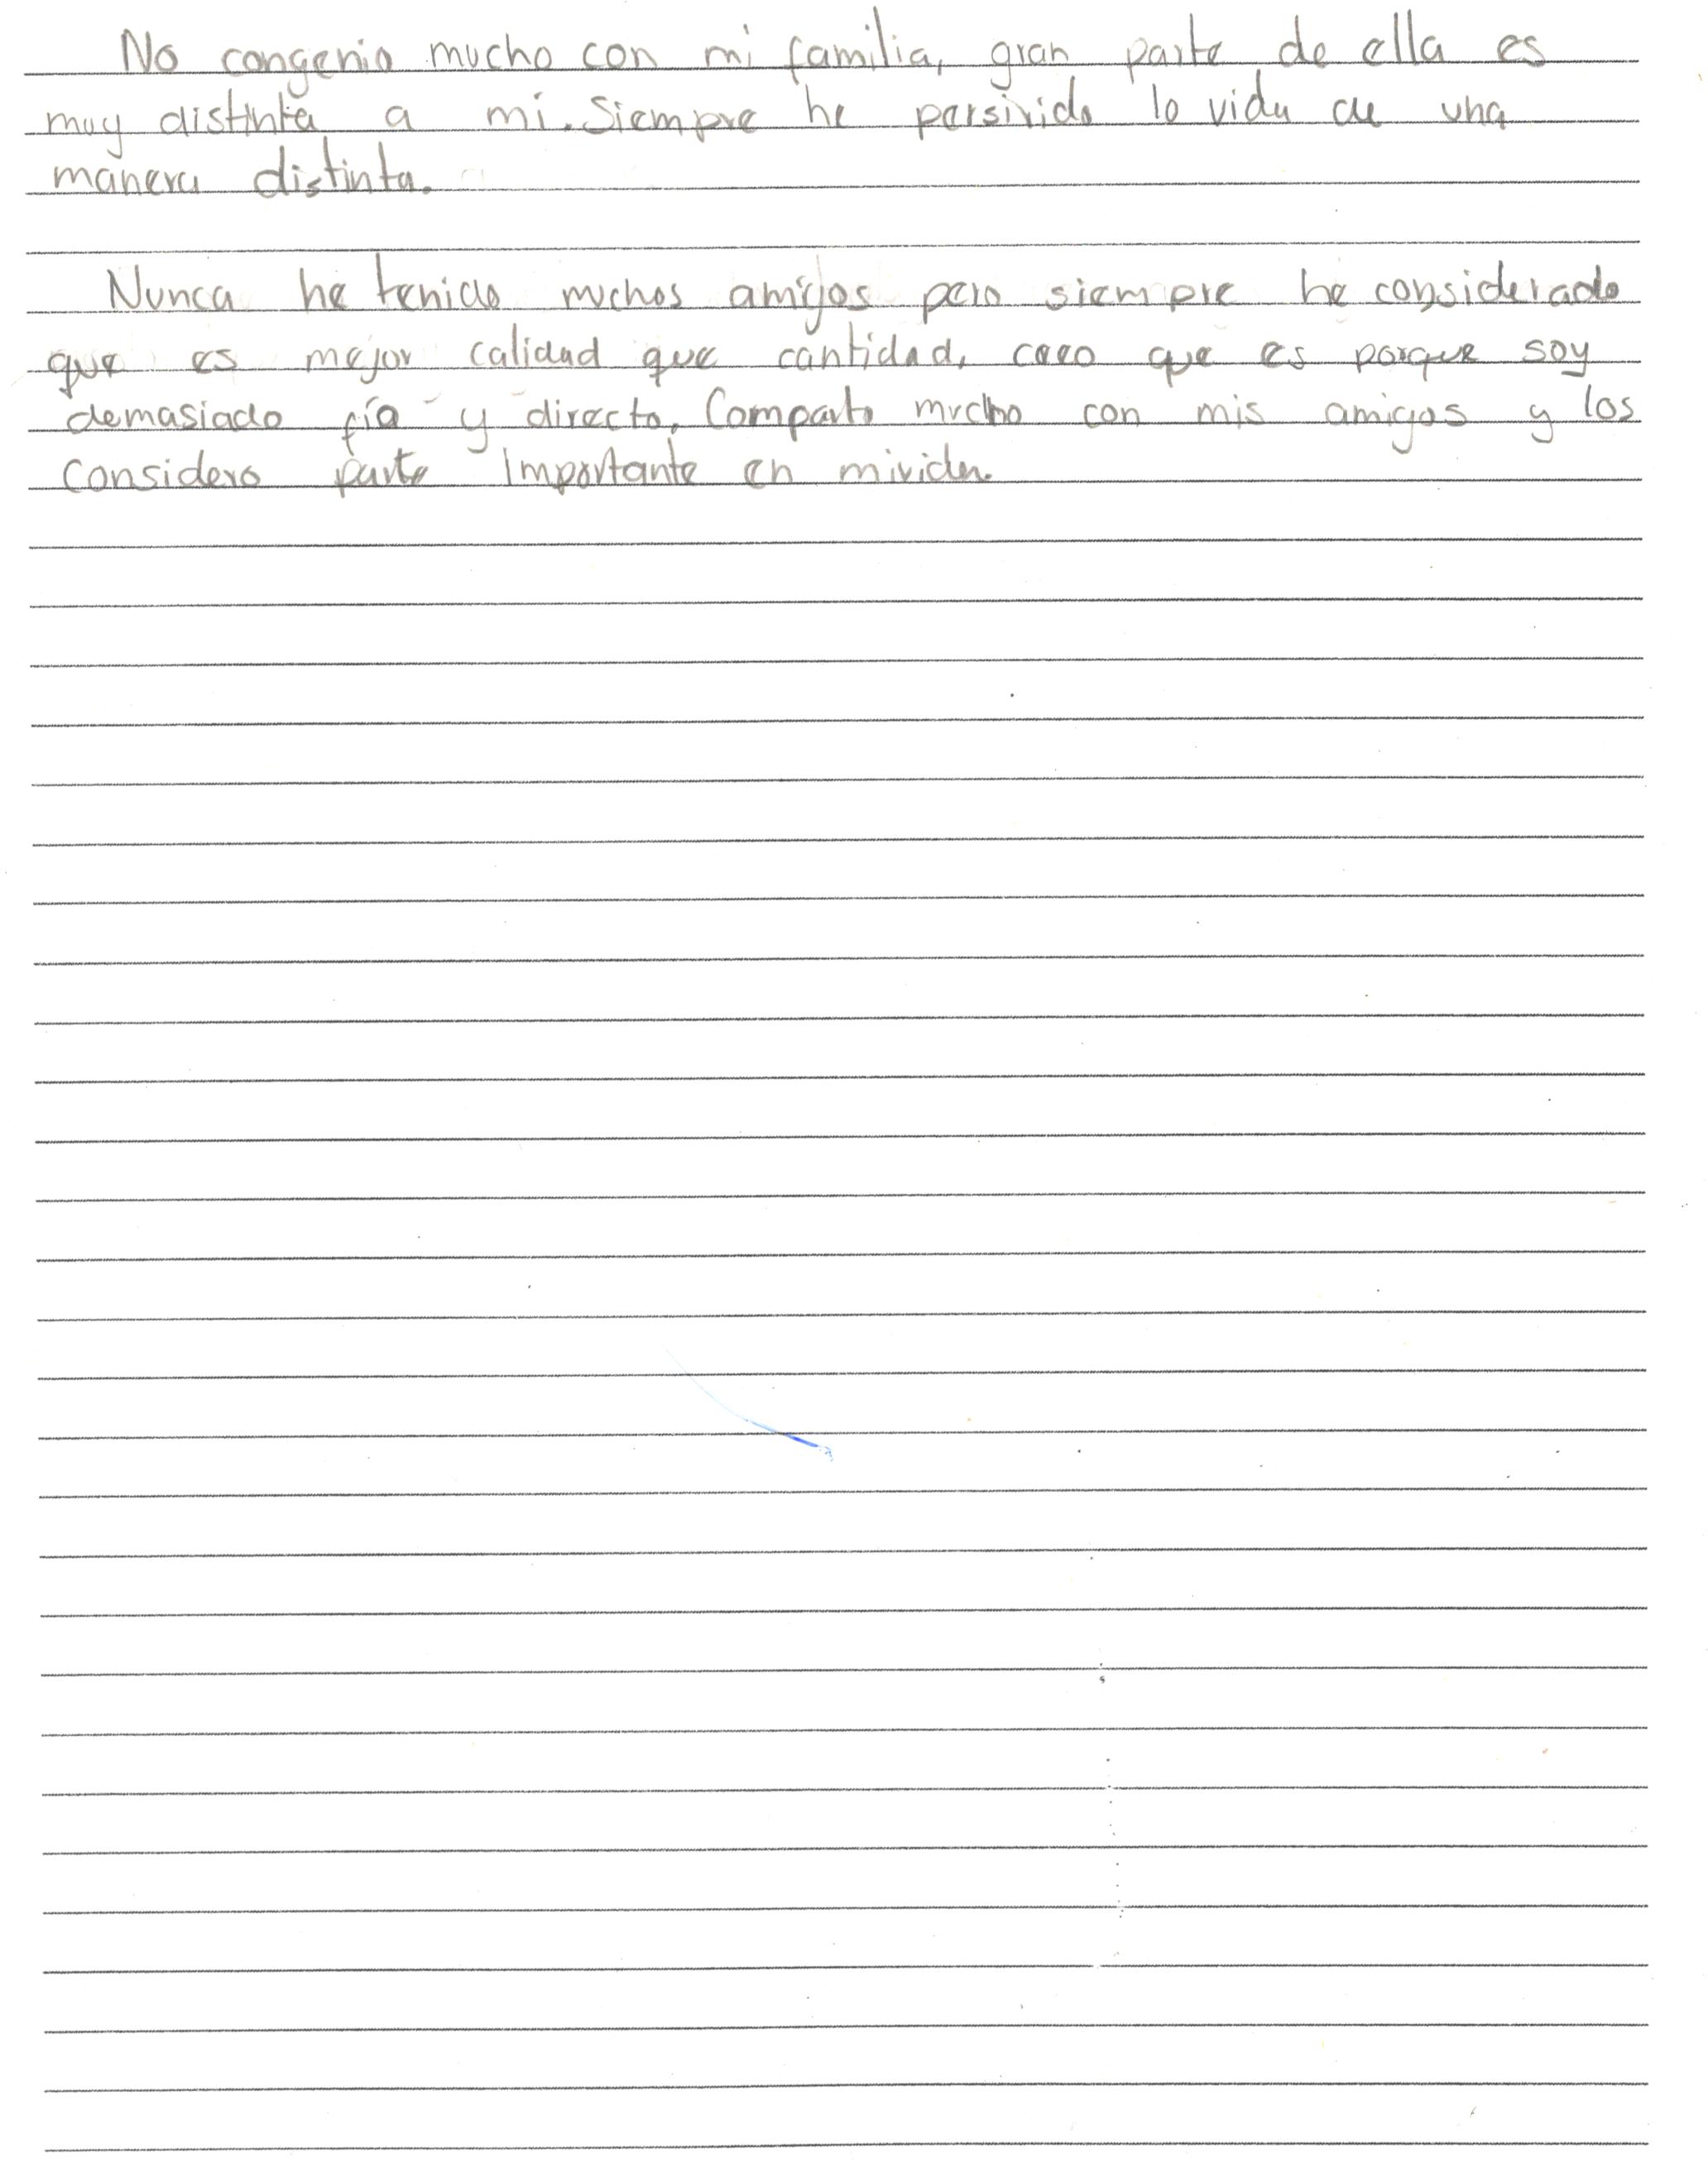 No congenio mucho con mi familia, gran parte de ella es
muy distinta a mi. Siempre he persivido la vida de una
manera distinta.
Nunca he tenido muchos amigos pero siempre he considerado
que es mejor calidad que cantidad, creo que es porque soy
demasiado fío y directo. Comparto mucho con mis amigos y los
considero parte importante en mi vida.